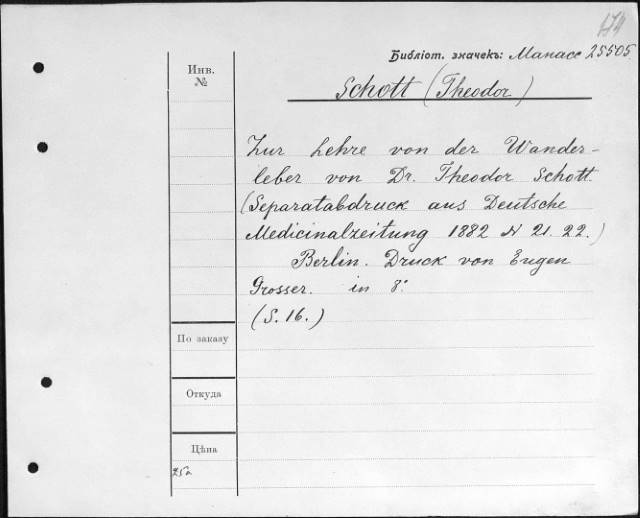 174
Библіот. значекъ: Манасс 25505
Инв.
№
Schott (Theodor)
Zur Lehre von der Wander-
leber von Dr. Theodor Schott.
(Separatabdruck aus Deutsche
Medicinalzeitung 1882 N 21. 22.)
Berlin. Druck von Eugen
Grosser. in 8º
(S. 16.)
По заказу
Откуда
Цѣна